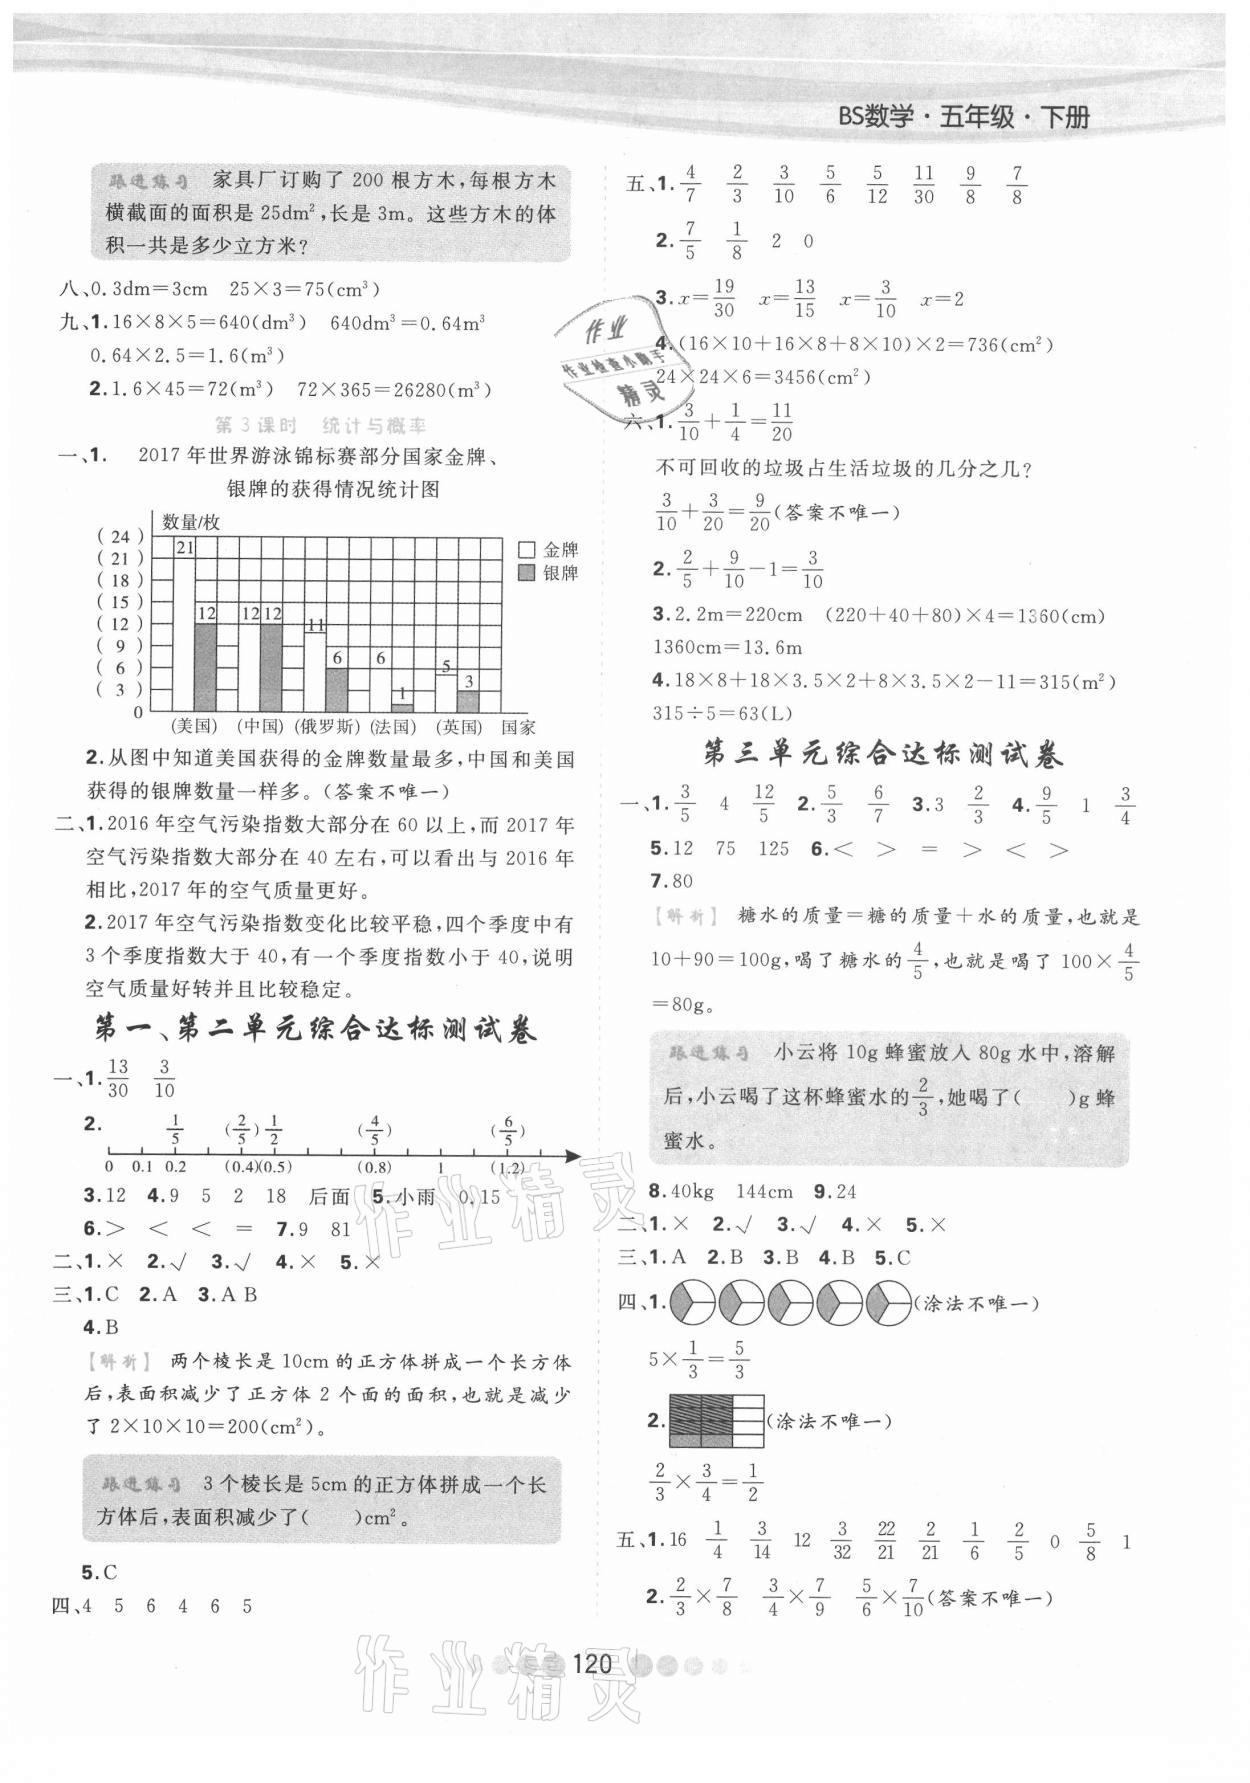 BS数学·五年级·下册
跟进练习 家具厂订购了 200 根方木,每根方木
横截面的面积是 25dm²,长是 3m。这些方木的体
积一共是多少立方米?
八、0.3dm=3cm 25×3=75(cm³)
九、1.16×8×5=640(dm³) 640dm³=0.64m³
0.64×2.5=1.6(m³)
2.1.6×45=72(m³) 72×365=26280(m³)
第 3 课时 统计与概率
一、1. 2017 年世界游泳锦标赛部分国家金牌、
银牌的获得情况统计图
数量/枚
(24)
(21)
(18)
(15)
(12)
(9)
(6)
(3)
0
21 12 12 12 11 6 6 1 5 3
金牌
银牌
(美国) (中国) (俄罗斯) (法国) (英国) 国家
2.从图中知道美国获得的金牌数量最多,中国和美国
获得的银牌数量一样多。(答案不唯一)
二、1.2016 年空气污染指数大部分在 60 以上,而 2017 年
空气污染指数大部分在 40 左右,可以看出与 2016 年
相比,2017 年的空气质量更好。
2.2017 年空气污染指数变化比较平稳,四个季度中有
3 个季度指数大于 40,有一个季度指数小于 40,说明
空气质量好转并且比较稳定。
第一、第二单元综合达标测试卷
一、1. 13/30 3/10
2. 1/5 (2/5) 1/2 (4/5) (6/5)
0 0.1 0.2 (0.4)(0.5) (0.8) 1 (1.2)
3.12 4.9 5 2 18 后面 5.小雨 0.15
6.> < < = 7.9 81
二、1.× 2.√ 3.√ 4.× 5.×
三、1.C 2.A 3.A B
4.B
【解析】 两个棱长是 10cm 的正方体拼成一个长方体
后,表面积减少了正方体 2 个面的面积,也就是减少
了 2×10×10=200(cm²)。
跟进练习 3 个棱长是 5cm 的正方体拼成一个长
方体后,表面积减少了( )cm²。
5.C
四、4 5 6 4 6 5
五、1. 4/7 2/3 3/10 5/6 5/12 11/30 9/8 7/8
2. 7/5 1/8 2 0
3. x=19/30 x=13/15 x=3/10 x=2
4.(16×10+16×8+8×10)×2=736(cm²)
24×24×6=3456(cm²)
六、1. 3/10+1/4=11/20
不可回收的垃圾占生活垃圾的几分之几?
3/10+3/20=9/20(答案不唯一)
2. 2/5+9/10-1=3/10
3.2.2m=220cm (220+40+80)×4=1360(cm)
1360cm=13.6m
4.18×8+18×3.5×2+8×3.5×2-11=315(m²)
315÷5=63(L)
第三单元综合达标测试卷
一、1. 3/5 4 12/5 2. 5/3 6/7 3.3 2/3 4. 9/5 1 3/4
5.12 75 125 6.< > = > < >
7.80
【解析】 糖水的质量=糖的质量+水的质量,也就是
10+90=100g,喝了糖水的4/5,也就是喝了 100×4/5
=80g。
跟进练习 小云将 10g 蜂蜜放入 80g 水中,溶解
后,小云喝了这杯蜂蜜水的2/3,她喝了( )g 蜂
蜜水。
8.40kg 144cm 9.24
二、1.× 2.√ 3.√ 4.× 5.×
三、1.A 2.B 3.B 4.B 5.C
四、1.(涂法不唯一)
5×1/3=5/3
2.(涂法不唯一)
2/3×3/4=1/2
五、1.16 1/4 3/14 12 3/32 22/21 2/21 1/6 2/5 0 5/8 1
2. 2/3×7/8 3/4×7/9 5/6×7/10(答案不唯一)
120
作业
作业检查小助手
精灵
作业精灵
作业精灵